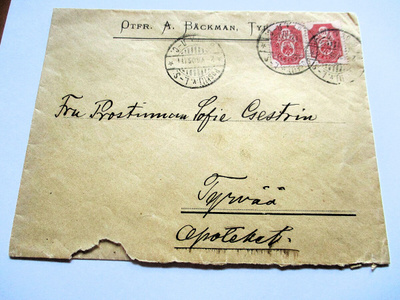 OTFR. A. BÄCKMAN, TY
Fru Prostinnan Sofie Gestrin
Tyrvää
Apoteket.